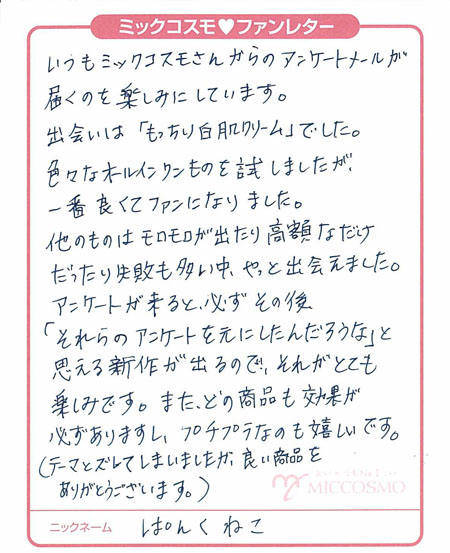 ミックコスモ♥ファンレター
いつもミックコスモさんからのアンケートメールが
届くのを楽しみにしています。
出会いは「もっちり白肌クリーム」でした。
色々なオールインワンものを試しましたが、
一番良くてファンになりました。
他のものはモロモロが出たり高額なだけ
だったり失敗も多い中、やっと出会えました。
アンケートが来ると、必ずその後
「それらのアンケートを元にしたんだろうな」と
思える新作が出るので、それがとても
楽しみです。また、どの商品も効果が
必ずありますし、プチプラなのも嬉しいです。
(テーマとズレてしまいましたが、良い商品を
ありがとうございます。)
MICCOSMO
ニックネーム ぱんくねこ